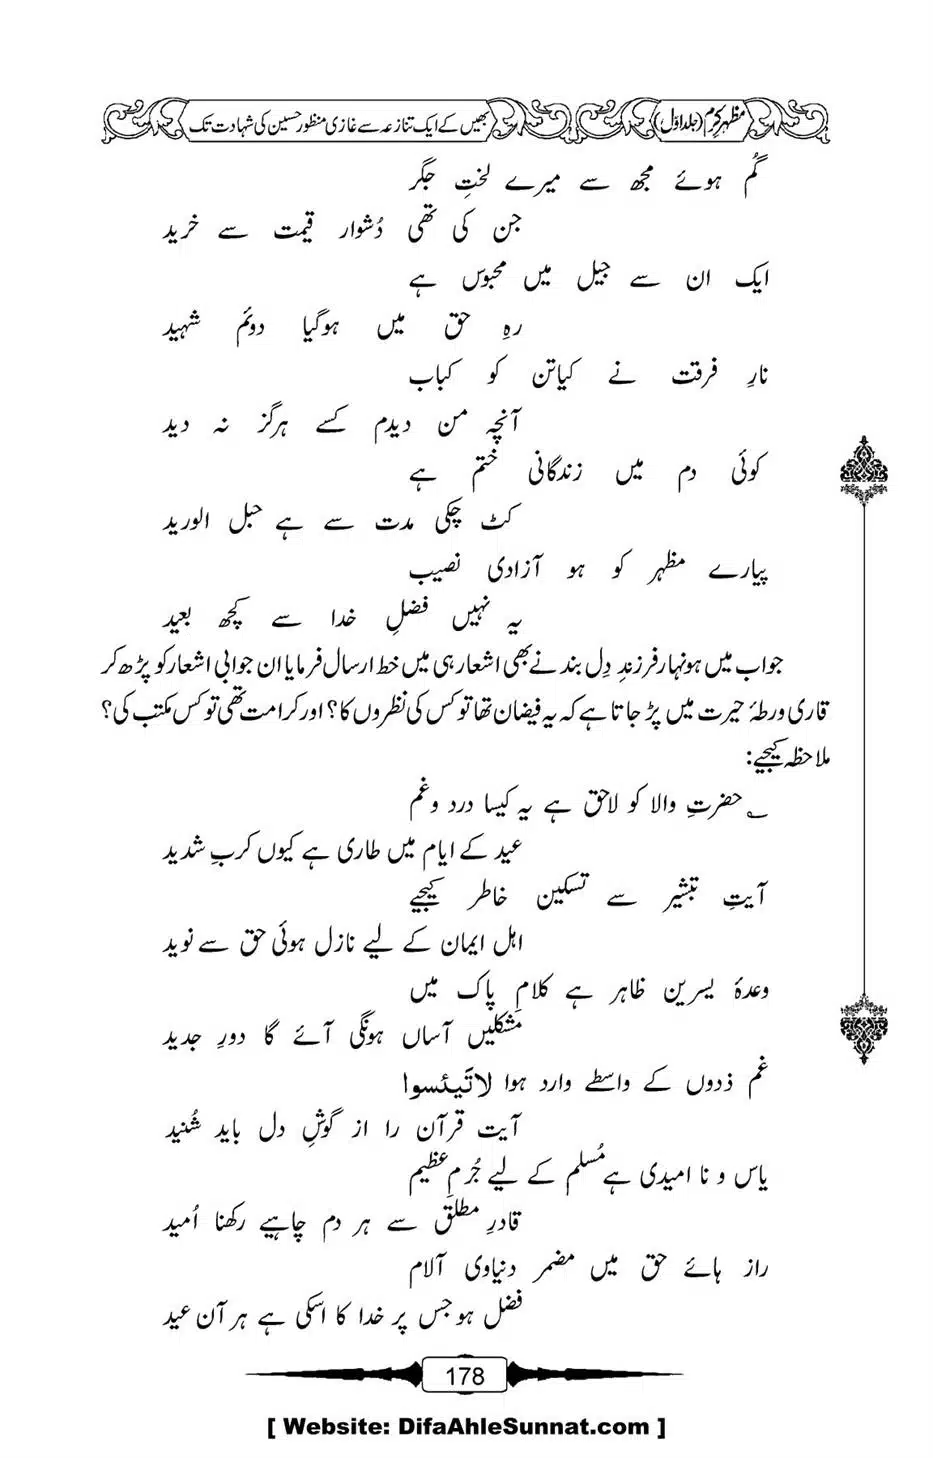 مظہر کرم (جلد اول)
بھیں کے ایک تنازعہ سے غازی منظور حسین کی شہادت تک
گُم ہوئے مجھ سے میرے لختِ جگر
جن کی تھی دُشوار قیمت سے خرید
ایک ان سے جیل میں محبوس ہے
رہِ حق میں ہوگیا دوئم شہید
نارِ فرقت نے کیاتن کو کباب
آنچہ من دیدم کسے ہرگز نہ دید
کوئی دم میں زندگانی ختم ہے
کٹ چکی مدت سے ہے حبل الورید
پیارے مظہر کو ہو آزادی نصیب
یہ نہیں فضلِ خدا سے کچھ بعید
جواب میں ہونہار فرزندِ دِل بند نے بھی اشعار ہی میں خط ارسال فرمایا ان جوابی اشعار کو پڑھ کر
قاری ورطۂ حیرت میں پڑ جاتا ہے کہ یہ فیضان تھا تو کس کی نظروں کا؟ اور کرامت تھی تو کس مکتب کی؟
ملاحظہ کیجیے:
؎ حضرتِ والا کو لاحق ہے یہ کیسا درد وغم
عید کے ایام میں طاری ہے کیوں کربِ شدید
آیتِ تبشیر سے تسکین خاطر کیجیے
اہل ایمان کے لیے نازل ہوئی حق سے نوید
وعدۂ یسرین ظاہر ہے کلامِ پاک میں
مشکلیں آساں ہونگی آئے گا دورِ جدید
غم ذدوں کے واسطے وارد ہوا لاتَیئسوا
آیت قرآن را از گوشِ دل باید شُنید
یاس و نا امیدی ہے مُسلم کے لیے جُرمِ عظیم
قادرِ مطلق سے ہر دم چاہیے رکھنا اُمید
راز ہائے حق میں مضمر دنیاوی آلام
فضل ہو جس پر خدا کا اسکی ہے ہر آن عید
178
[ Website: DifaAhleSunnat.com ]